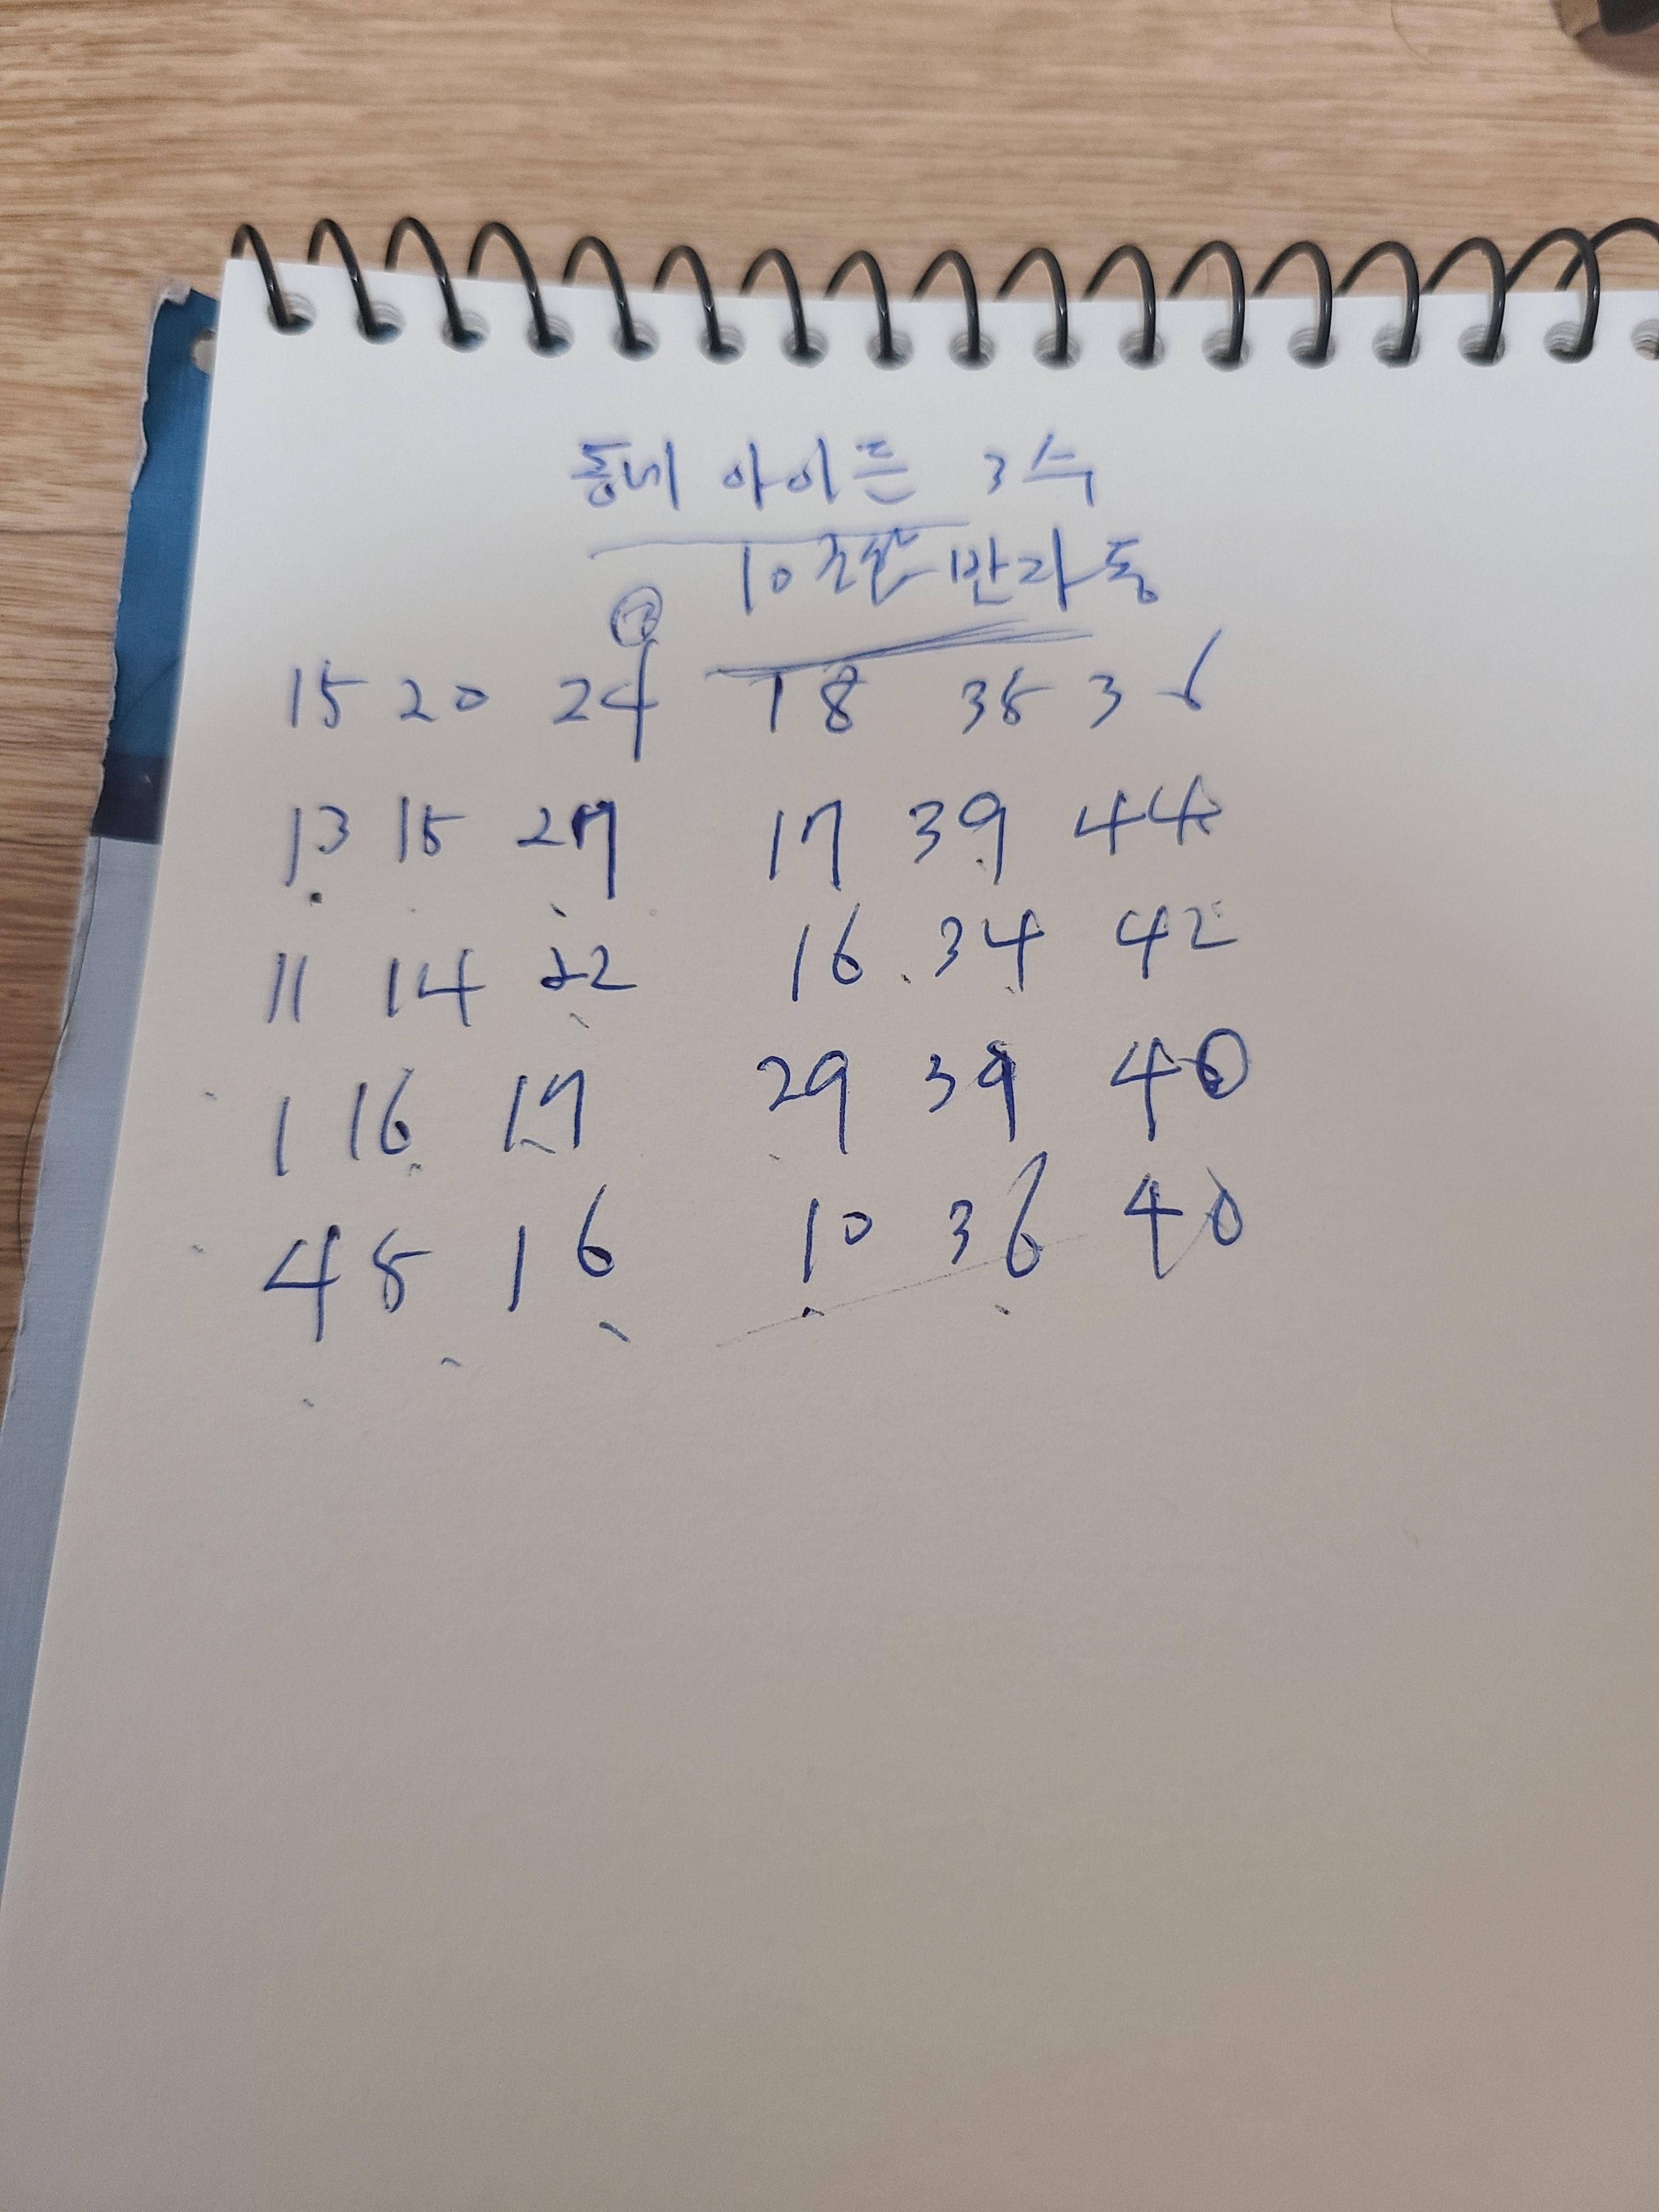 동네 아이튼 3수
10조합 반자동
15 20 24 18 35 36
13 15 27 17 39 44
11 14 22 16 34 42
1 16 17 29 39 40
4 8 16 10 36 40